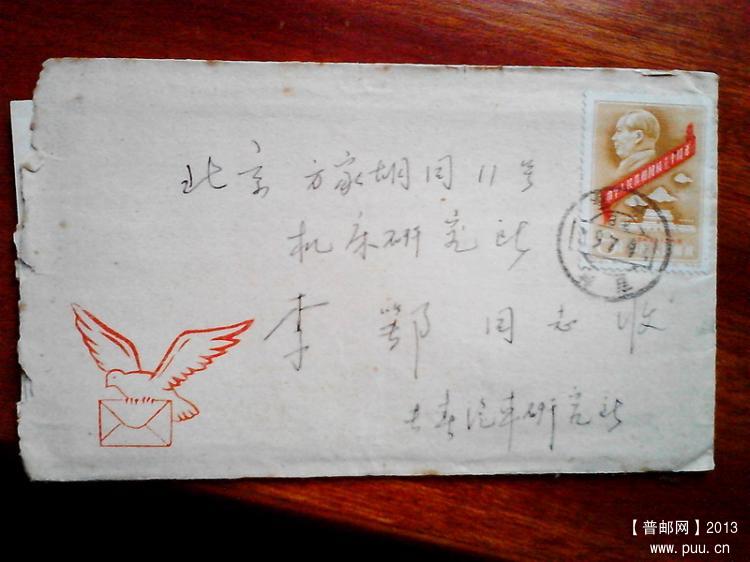 北京 方家胡同 11号
机床研究所
李鄂 同志收
长春汽车研究所
【普邮网】2013
www.puu.cn